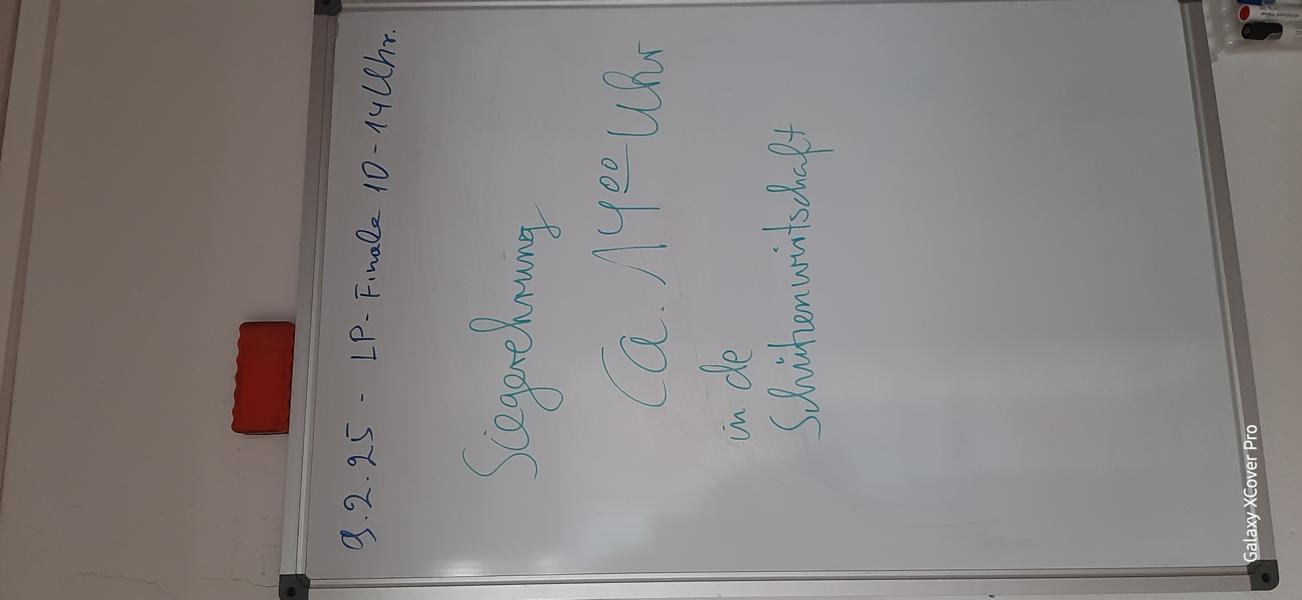 9.2.25 - LP-Finale 10-14Uhr.
Siegerehrung
Ca. 14⁰⁰ Uhr
in de
Schützenwirtschaft
Galaxy XCover Pro